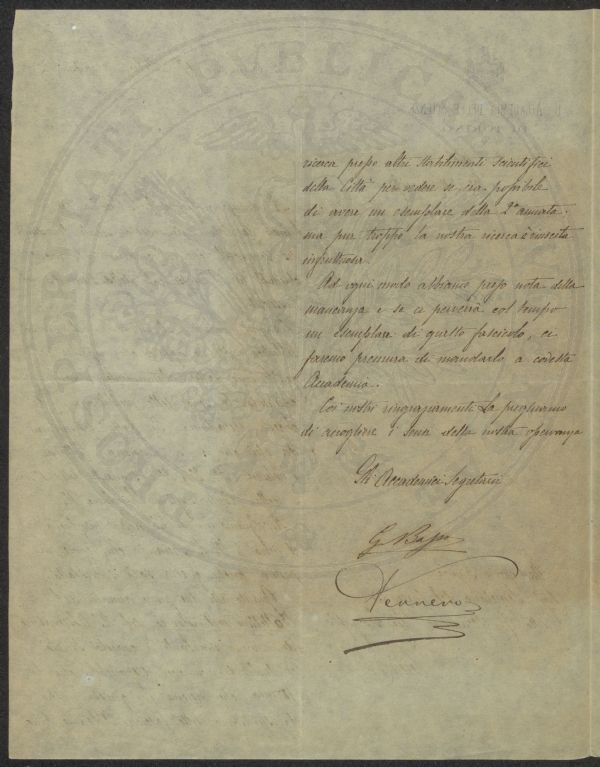 ricerca presso altri stabilimenti scientifici
della Città per vedere se era possibile
di avere un esemplare della 2ª annata.
ma pur troppo la nostra ricerca è riuscita
infruttuosa.
Ad ogni modo abbiamo preso nota della
mancanza e se ci perverrà col tempo
un esemplare di questo fascicolo, ci
faremo premura di mandarlo a codesta
Accademia.
Coi nostri ringraziamenti La preghiamo
di accogliere i sensi della nostra osservanza
Gli Accademici Segretarii
G Basso
Ferrero
PVBLIC